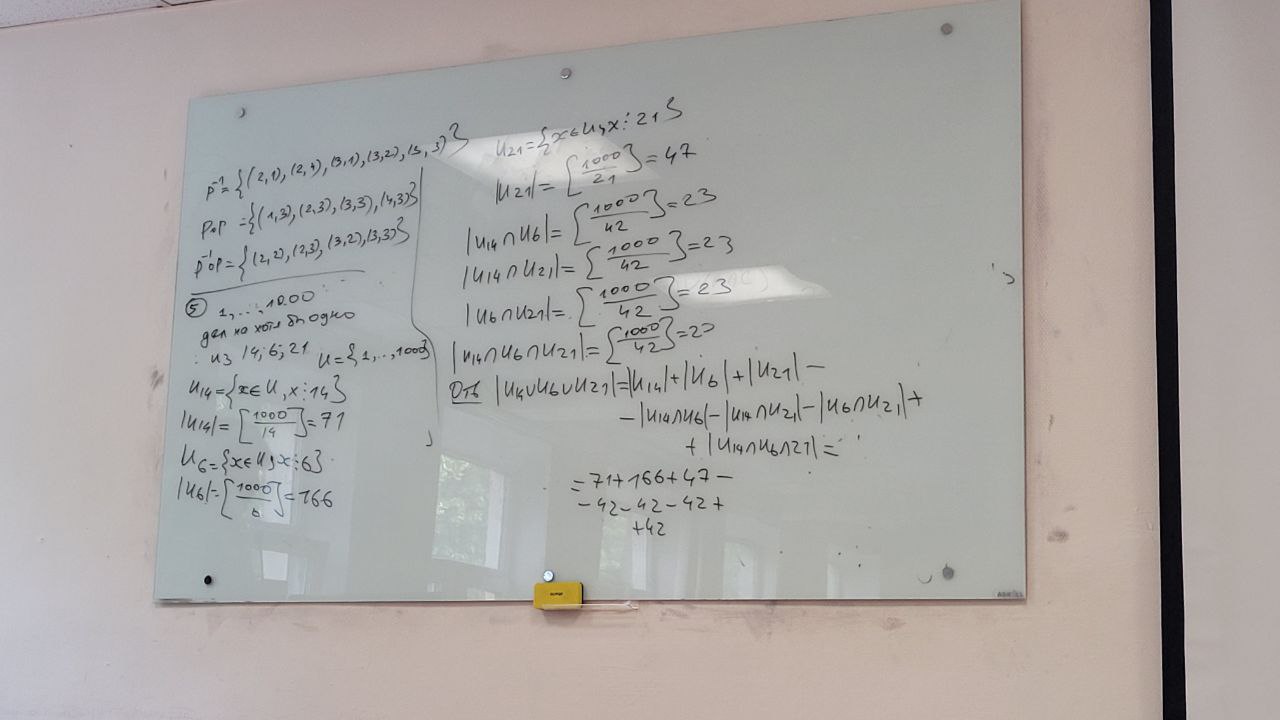 P⁻¹={(2,1),(2,4),(3,1),(3,2),(3,3)}
P∘P={(1,3),(2,3),(3,3),(4,3)}
P⁻¹∘P={(2,2),(2,3),(3,2),(3,3)}
⑤ 1,...,1000
дел на хотя бы одно
из 14; 6; 21 U={1,..,1000}
U₁₄={x∈U, x⋮14}
|U₁₄|=[1000/14]=71
U₆={x∈U, x⋮6}
|U₆|=[1000/6]=166
U₂₁={x∈U, x⋮21}
|U₂₁|=[1000/21]=47
|U₁₄∩U₆|=[1000/42]=23
|U₁₄∩U₂₁|=[1000/42]=23
|U₆∩U₂₁|=[1000/42]=23
|U₁₄∩U₆∩U₂₁|=[1000/42]=23
Отв |U₁₄∪U₆∪U₂₁|=|U₁₄|+|U₆|+|U₂₁|−
−|U₁₄∩U₆|−|U₁₄∩U₂₁|−|U₆∩U₂₁|+
+|U₁₄∩U₆∩21|=
=71+166+47−
−42−42−42+
+42